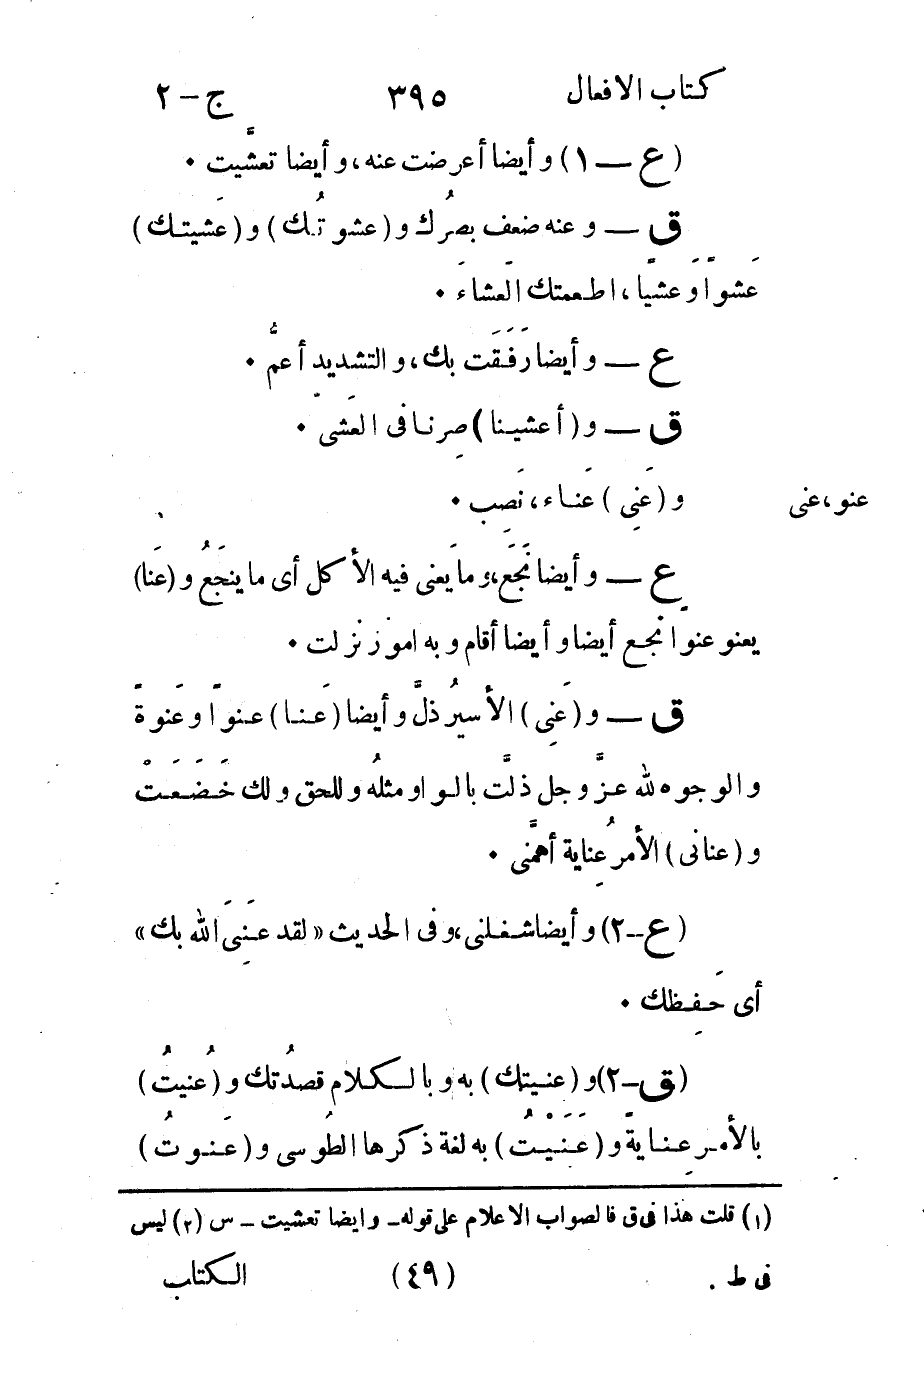 كتاب الافعال ٣٩٥ ج-٢
(ع — ١) وأيضا أعرضت عنه، وأيضا تعشَّيت .
ق — وعنه ضعف بصرُك و(عشوتُك) و(عَشيتك)
عَشوًا وعَشيًا، اطعمتك العَشاء .
ع — وأيضا رَفَقَت بك، والتشديد أعمُّ .
ق — و(أعشينا) صِرنا فى العَشىّ .
عنو، عنى و(عَنِى) عَناء، نَصِب .
ع — وأيضا نَجَعَ، وما يَعنى فيه الأكل أى ما ينجَعُ و(عَنا)
يعنو عنوا نجع أيضا وأيضا أقام وبه امور نزلت .
ق — و(عَنِى) الأسيرُ ذلَّ وأيضا (عَنا) عنوًا وعَنوةً
والوجوه لله عزَّ وجل ذلَّت بالواو مثلُه وللحق ولك خَضَعَتْ
و(عنانى) الأمرُ عِناية أهمَّنى .
(ع-٢) وأيضا شغلنى، وفى الحديث « لقد عَنِىَ الله بك »
أى حَفِظك .
(ق-٢) و(عنيتك) به وبالكلام قصدُتك و(عُنيتُ)
بالأمر عِنايةً و(عَنَيْتُ) به لغة ذكرها الطُوسى و(عَنوتُ)
(١) قلت هذا فى ق فالصواب الاعلام على قوله- وايضا تعشيت - س (٢) ليس
فى ط .
(٤٩) الكتاب